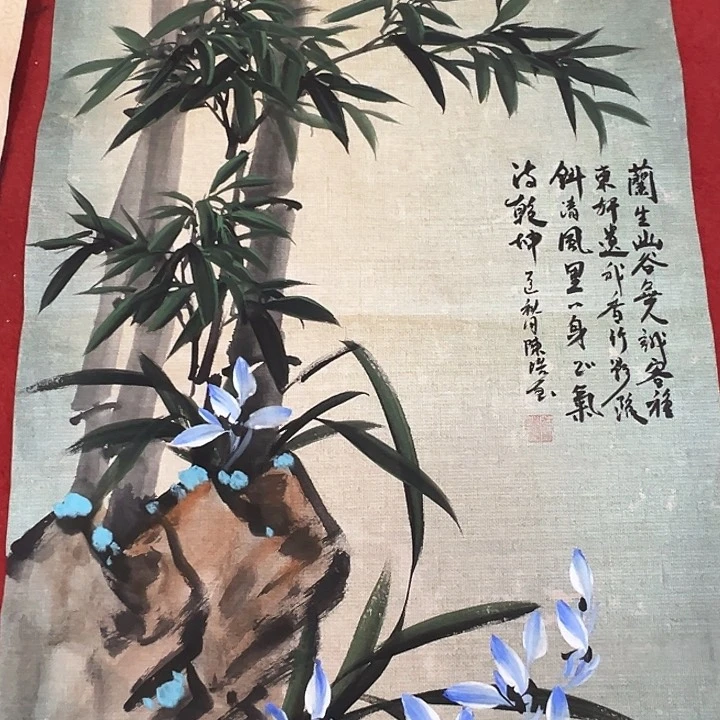 蘭生幽谷無人識客種
東軒遺我香竹影
斜清風里一身正氣
乾坤
秋月陳